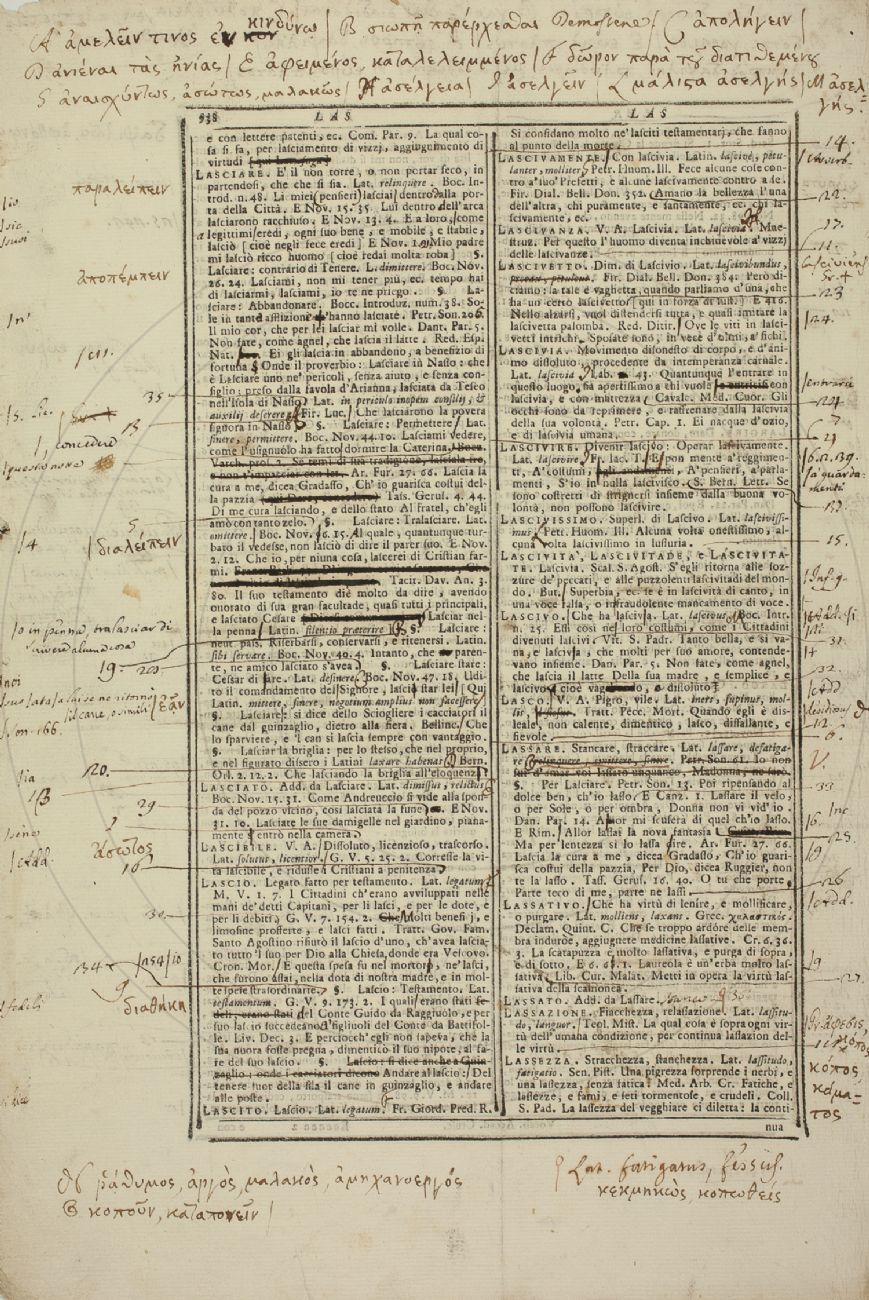 A ἀμελεῖν τινος ἐν κινδύνῳ / B σιωπῇ παρέρχεσθαι Demostene / C ἀπολήγειν /
D ἀνιέναι τὰς ἡνίας / E ἀφειμένος, καταλελειμμένος / F δῶρον παρὰ τοῦ διατιθεμένου
G ἀναισχύντως, ἀσώτως, μαλακῶς / H ἀσέλγεια / I ἀσελγεῖν / L μάλιστα ἀσελγής / M ἀσελ-
γής
938 LAS
e con lettere patenti, ec. Com. Par. 9. La qual co-
sa si fa, per lasciamento di vizzj, aggiugnimento di
virtudi
LASCIARE. E' il non torre, o non portar seco, in
partendosi, che che si sia. Lat. relinquere. Boc. In-
trod. n. 48. Li miei pensieri lasciai dentro dalla por-
ta della Città. E Nov. 15. 35. Lui dentro dell'arca
lasciarono racchiuso. E Nov. 13. 4. E a loro, come
a legittimi eredi, ogni suo bene, e mobile, e stabile,
lasciò [cioè negli fece eredi] E Nov. 1. Mio padre
mi lasciò ricco huomo [cioè redai molta roba] §.
Lasciare: contrario di Tenere. L. dimittere. Boc. Nov.
26. 24. Lasciami, non mi tener più, ec. tempo hai
di lasciarmi, lasciami, io te ne priego. §. La-
sciare: Abbandonare. Bocc. Introduz. num. 38. So-
le in tanta afflizione n'hanno lasciate. Petr. Son. 206.
Il mio cor, che per lei lasciar mi volle. Dant. Par. 5.
Non fate, come agnel, che lascia il latte. Red. Esp.
Nat. Ei gli lascia in abbandono, a benefizio di
fortuna § Onde il proverbio: Lasciare in Nasso: che
è Lasciare uno ne' pericoli, senza aiuto, e senza con-
siglio: preso dalla favola d'Arianna, lasciata da Teseo
nell'Isola di Nasso. Lat. in periculis inopem consilij, &
auxilij deserere. Fir. Luc. Che lasciarono la povera
signora in Nasso §. Lasciare: Permettere. Lat.
sinere, permittere. Boc. Nov. 44. 10. Lasciami vedere,
come l'usignuolo ha fatto dormire la Caterina. Bocc.
Varch. prof. 2. Se temi di sua tradigione, lasciala ire,
e non t'impacciar con lei. Ar. Fur. 27. 66. Lascia la
cura a me, dicea Gradasso, Ch'io guarisca costui del-
la pazzia Tass. Gerus. 4. 44.
Di me cura lasciando, e dello stato Al fratel, ch'egli
amò con tanto zelo. §. Lasciare: Tralasciare. Lat.
omittere. Boc. Nov. 16. 15. Al quale, quantunque tur-
bato il vedesse, non lasciò di dire il parer suo. E Nov.
2. 12. Che io, per niuna cosa, lascerei di Cristian far-
mi. Tacit. Dav. An. 3.
80. Il suo testamento diè molto da dire, avendo
onorato di sua gran facultade, quasi tutti i principali,
e lasciato Cesare Lasciar nel-
la penna Latin. silentio præterire §. Lasciare:
neut. pass. Riserbarsi, conservarsi, e ritenersi. Latin.
sibi servare. Boc. Nov. 40. 4. Intanto, che paren-
te, ne amico lasciato s'avea §. Lasciare stare:
Cessar di fare. Lat. desinere. Boc. Nov. 47. 18. Udi-
to il comandamento del Signore, lasciò star lei [Qui
Latin. mittere, sinere, negotium amplius non facessere]
§. Lasciare: si dice dello Sciogliere i cacciatori il
cane dal guinzaglio, dietro alla fiera. Bellinc. Che
lo sparviere, e 'l can si lascia sempre con vantaggio.
§. Lasciar la briglia: per lo stesso, che nel proprio,
e nel figurato dissero i Latini laxare habenas. Bern.
Orl. 2. 12. 2. Che lasciando la briglia all'eloquenza
LASCIATO. Add. da Lasciare. Lat. dimissus, relictus.
Boc. Nov. 15. 31. Come Andreuccio si vide alla spon-
da del pozzo vicino, così lasciata la fune E Nov.
31. 10. Lasciate le sue damigelle nel giardino, piana-
mente se n'entrò nella camera
LASCIBILE. V. A. Dissoluto, licenzioso, trascorso.
Lat. solutus, licentior. G. V. 5. 25. 2. Corresse la vi-
ta lascibile, e ridusse i Cristiani a penitenza
LASCIO. Legato fatto per testamento. Lat. legatum.
M. V. 1. 7. I Cittadini ch'erano avviluppati nelle
mani de' detti Capitani, per li lasci, e per le dote, e
per li debiti G. V. 7. 154. 2. Che Molti benefij, e
limosine profferte, e lasci fatti. Tratt. Gov. Fam.
Santo Agostino rifiutò il lascio d'uno, ch'avea lascia-
to tutto 'l suo per Dio alla Chiesa, donde era Vescovo.
Cron. Mor. E questa spesa fu nel mortoro, ne' lasci,
che furono assai, nella dota di nostra madre, e in mol-
te spese straordinarie. §. Lascio: Testamento. Lat.
testamentum. G. V. 9. 173. 2. I quali erano stati fe-
deli, erano stati del Conte Guido da Raggiuolo, e per
suo lascio succedeano a' figliuoli del Conte da Battifol-
le. Liv. Dec. 3. E perciocch'egli non sapeva, che la
sua nuora fosse pregna, dimenticò il suo nipote, al fa-
re del suo lascio. §. Lascio: si dice anche a Guin-
zaglio; onde i cacciatori dicono Andare al lascio: Del
tenere fuor della fila il cane in guinzaglio, e andare
alle poste.
LASCITO. Lascio. Lat. legatum. Fr. Giord. Pred. R.
LAS
Si confidano molto ne' lasciti testamentarj, che fanno
al punto della morte.
LASCIVAMENTE. Con lascivia. Latin. lascivè, petu-
lanter, molliter. Petr. Huom. Ill. Fece alcune cose con-
tro a' suo' Prefetti, e alcune lascivamente contro a se.
Fir. Dial. Bell. Don. 352. Amano la bellezza l'una
dell'altra, chi puramente, e santamente, ec. chi la-
scivamente, ec.
LASCIVANZA. V. A. Lascivia. Lat. lascivia. Mae-
struz. Per questo l'huomo diventa inchinevole a' vizzj
delle lascivanze.
LASCIVETTO. Dim. di Lascivio. Lat. lascivibundus,
Fir. Dial. Bell. Don. 384. Però di-
ciamo: la tale è vaghetta, quando parliamo d'una, che
ha un certo lascivetto [qui in forza di sust.] E 416.
Nello alzarsi, vuol distendersi tutta, e quasi imitare la
lascivetta palomba. Red. Ditir. Ove le viti in lasci-
vetti intrichi, Sposate sono, in vece d'olmi, a' fichi.
LASCIVIA. Movimento disonesto di corpo, e d'ani-
mo dissoluto, procedente da intemperanza carnale.
Lat. lascivia. Lab. 43. Quantunque l'entrare in
questo luogo, sia apertissimo a chi vuole con
lascivia, e con mattezza. Cavalc. Med. Cuor. Gli
occhi sono da reprimere, e raffrenare dalla lascivia
della sua volontà. Petr. Cap. 1. Ei nacque d'ozio,
e di lascivia umana.
LASCIVIRE. Divenir lascivo: Operar lascivamente.
Lat. lascivire. Fr. Iac. T. E pon mente a' reggimen-
ti, A' costumi, A' pensieri, a' parla-
menti, S'io in nulla lascivisco. S. Bern. Lett. Se
sono costretti di strignersi insieme dalla buona vo-
lontà, non possono lascivire.
LASCIVISSIMO. Superl. di Lascivo. Lat. lascivissi-
mus. Petr. Huom. Ill. Alcuna volta onestissimo, al-
cuna volta lascivissimo in lussuria.
LASCIVITÀ, LASCIVITADE, e LASCIVITA-
TE. Lascivia. Scal. S. Agost. S'egli ritorna alle soz-
zure de' peccati, e alle puzzolenti lascivitadi del mon-
do. But. Superbia, ec. se è in lascività di canto, in
una voce falsa, o infraudolente mancamento di voce.
LASCIVO. Che ha lascivia. Lat. lascivus. Boc. Intr.
n. 25. Essi così ne' loro costumi, come i Cittadini
divenuti lascivi. Vit. S. Padr. Tanto bella, e sì va-
na, e lasciva, che molti per suo amore, contende-
vano insieme. Dan. Par. 5. Non fate, come agnel,
che lascia il latte Della sua madre, e semplice, e
lascivo cioè vagabondo, e dissoluto
LASCO. V. A. Pigro, vile. Lat. iners, supinus, mol-
lis, Tratt. Pecc. Mort. Quando egli è dis-
leale, non calente, dimentico, lasco, disfallante, e
fievole
LASSARE. Stancare, straccare. Lat. lassare, defatiga-
re, relinquere, omittere, sinere. Petr. Son. 61. Io non
fui d'amar voi lassato unquanco, Madonna, ne sarò.
§. Per Lasciare. Petr. Son. 13. Poi ripensando al
dolce ben, ch'io lasso. E Canz. 1. Lassare il velo,
o per Sole, o per ombra, Donna non vi vid'io.
Dan. Par. 14. Amor mi scuserà di quel ch'io lasso.
E Rim. Allor lassai la nova fantasia
Ma per lentezza sì lo lassa dire. Ar. Fur. 27. 66.
Lascia la cura a me, dicea Gradasso, Ch'io guari-
sca costui della pazzia, Per Dio, dicea Ruggier, non
te la lasso. Tass. Gerus. 16. 40. O tu che porte
Parte teco di me, parte ne lassi
LASSATIVO. Che ha virtù di lenire, e mollificare,
o purgare. Lat. molliens, laxans. Grec. χαλαστικός.
Declam. Quint. C. Che se troppo ardore delle mem-
bra indurde, aggiugnete medicine lassative. Cr. 6. 36.
3. La scatapuzza è molto lassativa, e purga di sopra,
e di sotto. E 6. 68. 1. Laureola è un'erba molto las-
sativa. Lib. Cur. Malat. Metti in opera la virtù las-
sativa della scamonea.
LASSATO. Add. da Lassare.
LASSAZIONE. Fiacchezza, relassazione. Lat. lassitu-
do, languor. Teol. Mist. La qual cosa è sopra ogni vir-
tù dell'umana condizione, per continua lassazion del-
le virtù.
LASSEZZA. Stracchezza, stanchezza. Lat. lassitudo,
fatigatio. Sen. Pist. Una pigrezza sorprende i nerbi, e
una lassezza, senza fatica. Med. Arb. Cr. Fatiche, e
lassezze, e fami, e seti tormentose, e crudeli. Coll.
S. Pad. La lassezza del vegghiare ci diletta: la conti-
nua
παραλείπειν
ἀποπέμπειν
35
13
concedere
5
διαλείπειν
14
19
20
120.
29
ἄσωτος
16
30
134
9
διαθήκη
14.
22.
17.
11.
23
124.
24
13
15.
31
32.
12
6.
V.
33
25.
26
Add.
19
27
ἄφεσις
κόπος
κόπος,
κάμα-
τος
N ῥᾴθυμος, ἀργός, μαλακός, ἀμηχανοεργός
O κοποῦν, καταπονεῖν /
P Lat. fatigatus, fessus.
κεκμηκώς, κοπωθείς